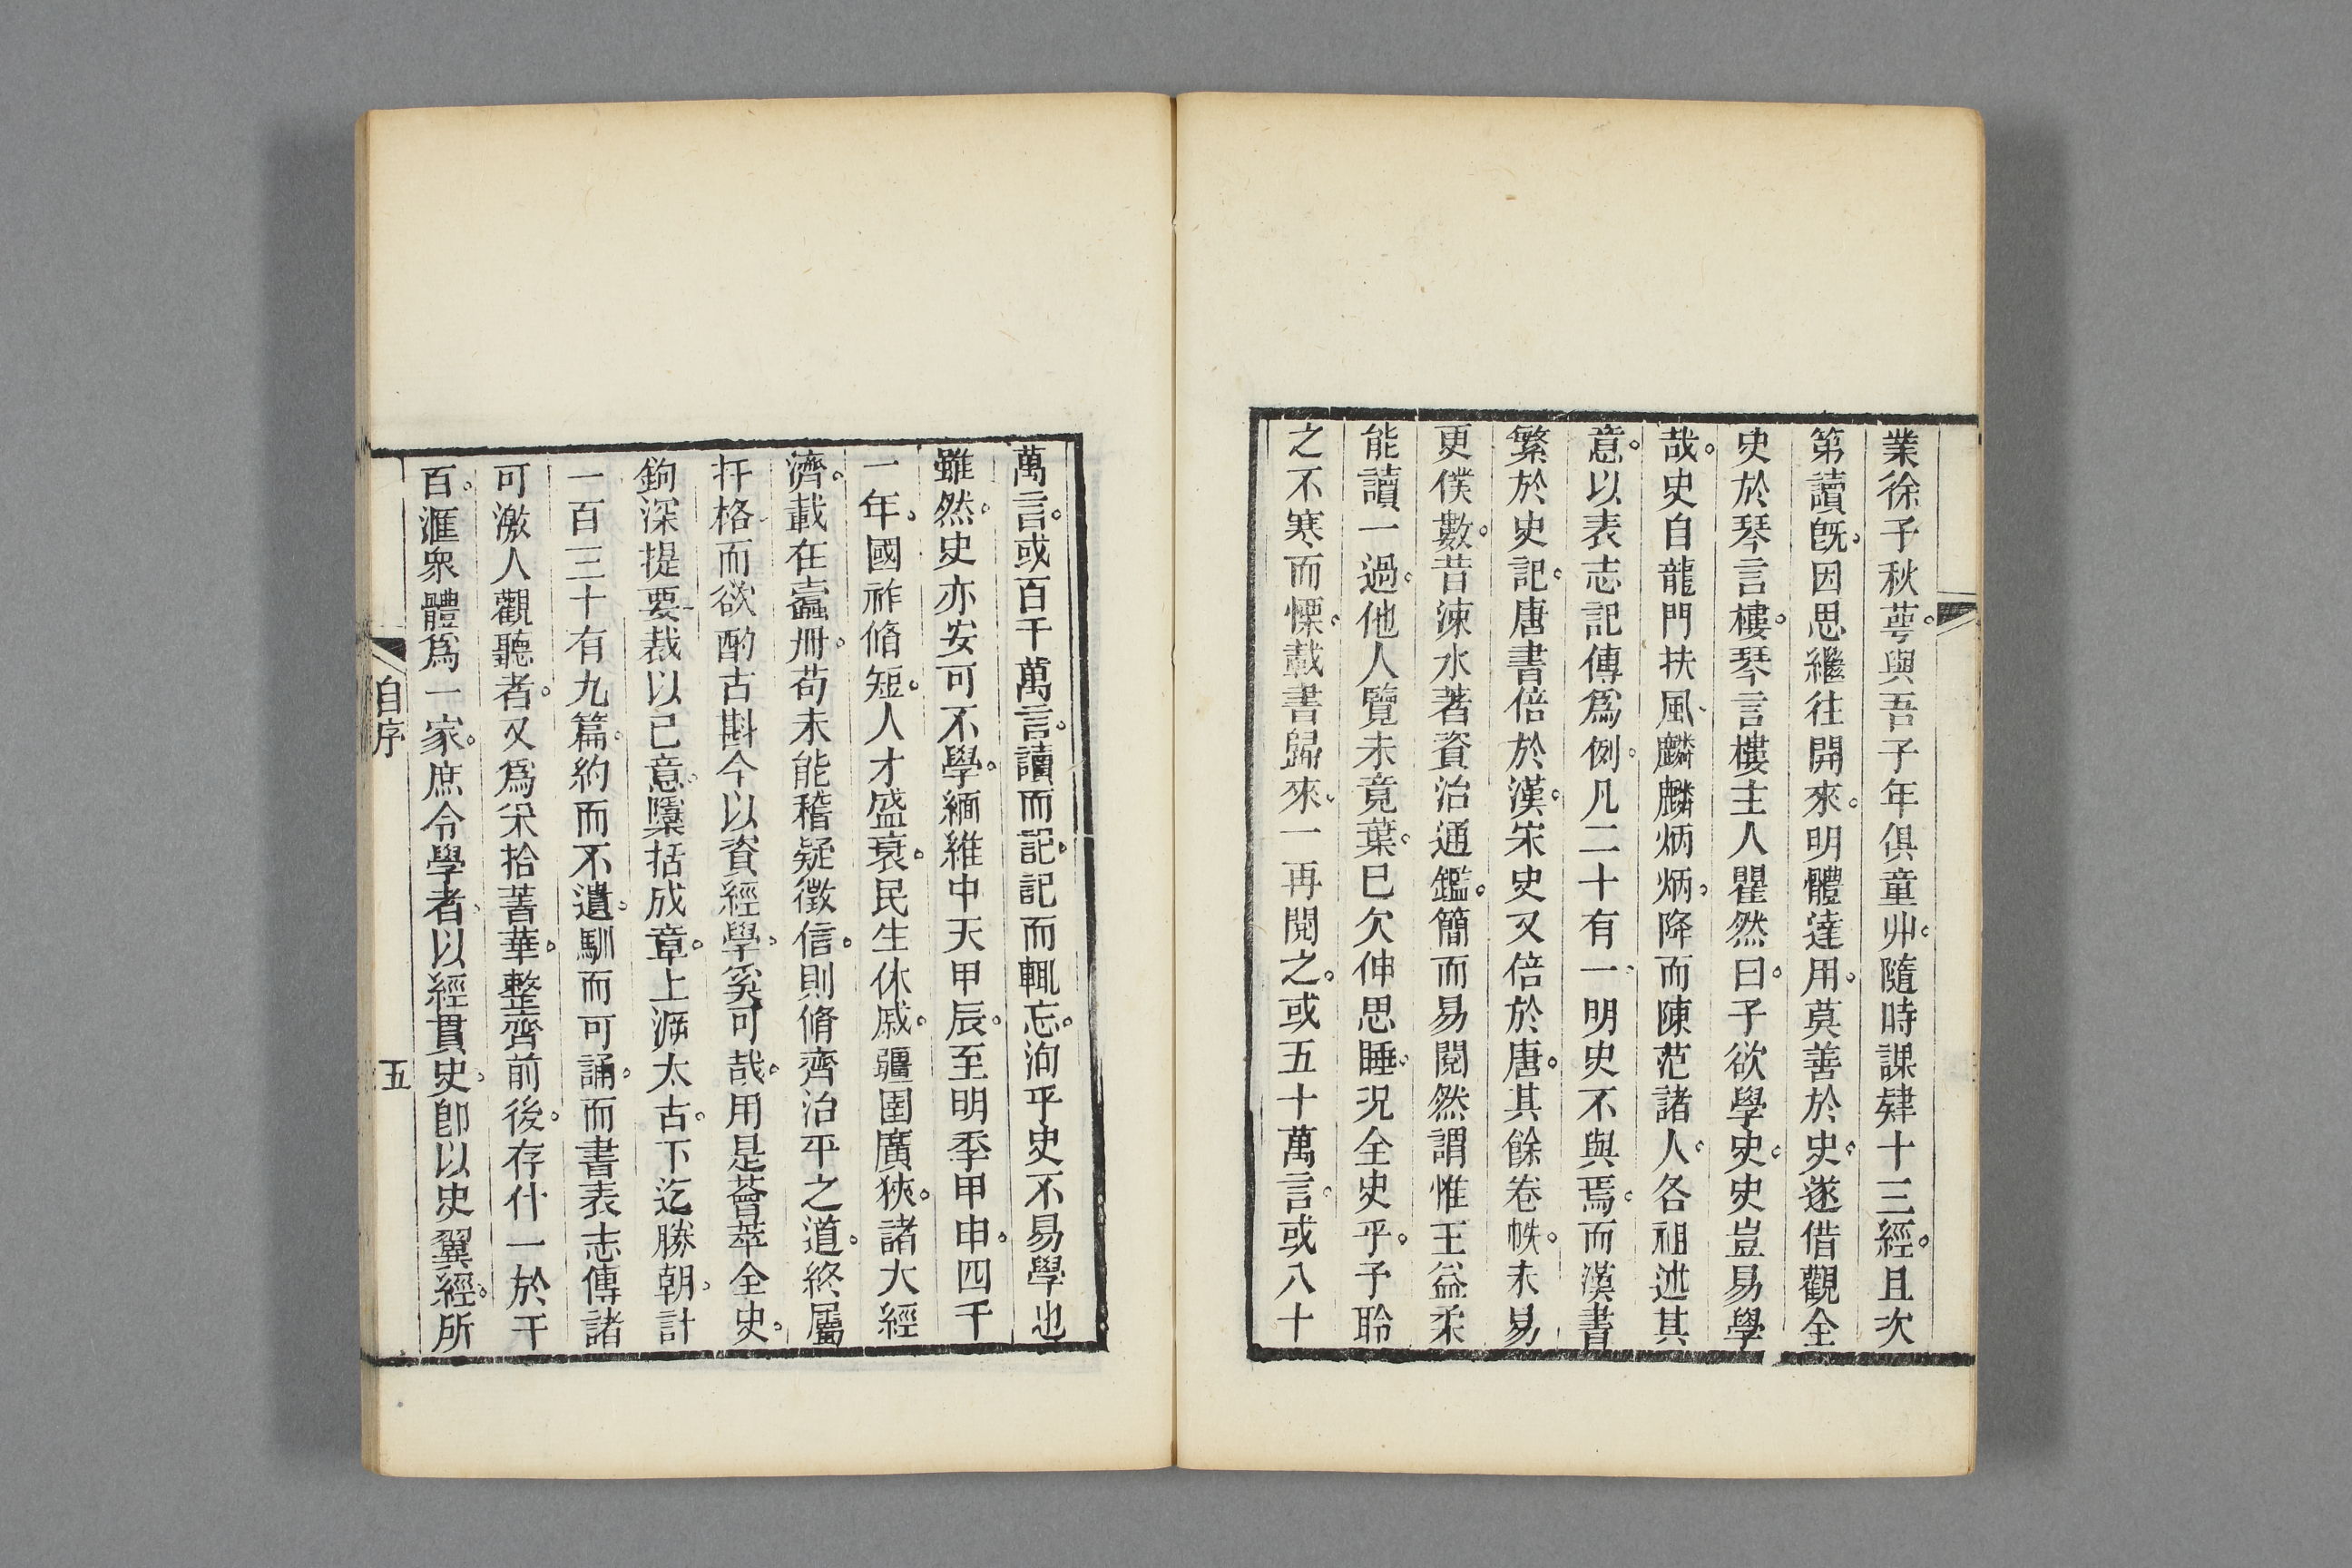 業徐子秋蕚。與吾子年俱童丱。隨時課肄十三經。且次
第讀旣。因思繼往開來。明體達用。莫善於史。遂借觀全
史於琴言樓。琴言樓主人瞿然曰。子欲學史。史豈易學
哉。史自龍門扶風、麟麟炳炳。降而陳范諸人。各祖述其
意。以表志記傳爲例。凡二十有一、明史不與焉。而漢書
繁於史記。唐書倍於漢。宋史又倍於唐。其餘卷帙。未易
更僕數。昔涑水著資治通鑑。簡而易閱然謂惟王益柔
能讀一過。他人覽未竟葉。已欠伸思睡。况全史乎。予聆
之不寒而慄。載書歸來。一再閱之。或五十萬言。或八十
萬言。或百千萬言。讀而記。記而輒忘。洵乎史不易學也
雖然。史亦安可不學。緬維中天甲辰。至明季甲申。四千
一年。國祚脩短。人才盛衰。民生休戚。疆圉廣狹。諸大經
濟。載在蠧册。苟未能稽疑徵信。則脩齊治平之道。終屬
扞格、而欲酌古斟今以資經學。奚可哉。用是薈萃全史。
鉤深提要、裁以己意。隱括成章。上溯太古。下迄勝朝。計
一百三十有九篇。約而不遺。馴而可誦。而書表志傳諸
可激人觀聽者。又爲采拾菁華。整齊前後。存什一於千
百。滙衆體爲一家。庶令學者、以經貫史。卽以史翼經。所
自序
五